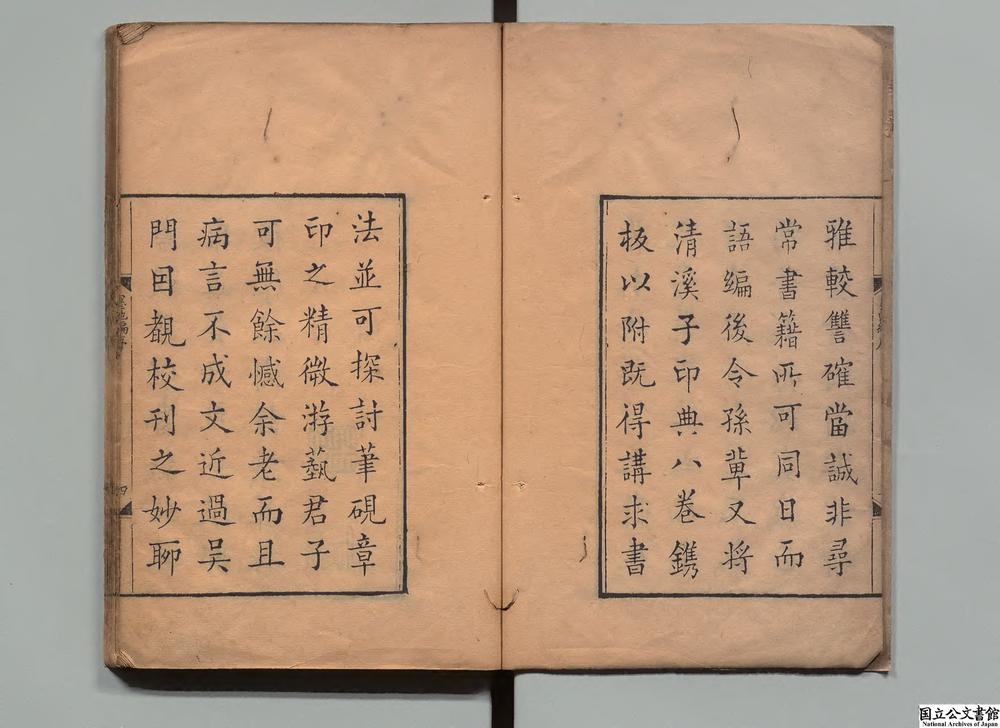 雅較讐確當誠非尋
常書籍所可同日而
語編後令孫軰又將
清溪子印典八卷鐫
板以附既得講求書
法並可探討筆硯章
印之精微游藝君子
可無餘憾余老而且
病言不成文近過吴
門因覩校刊之妙聊
四
国立公文書館
National Archives of Japan